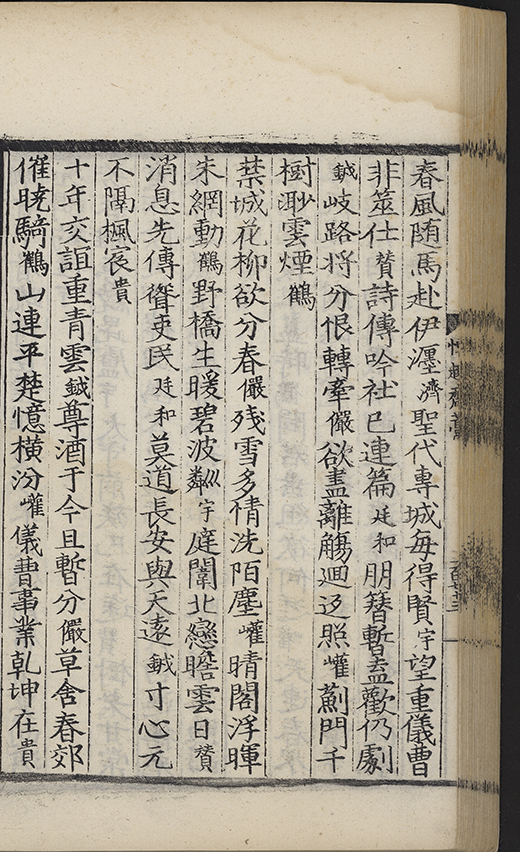 春風随馬赴伊瀍濟聖代專城每得賢宇望重儀曹
非筮仕賛詩傳吟社已連篇廷和朋簮暫盍歡仍劇
鉞岐路將分恨轉牽儼欲盡離觴迴返照巏薊門千
樹渺雲煙鶴
禁城花柳欲分春儼残雪多情洗陌塵巏晴閣浮暉
朱網動鶴野橋生暖碧波粼宇庭闈北戀瞻雲日賛
消息先傳聳吏民廷和莫道長安與天遠鉞寸心元
不隔楓宸貴
十年交誼重青雲鉞尊酒于今且暫分儼草舎春郊
催曉騎鶴山連平楚憶横汾巏儀曹事業乾坤在貴